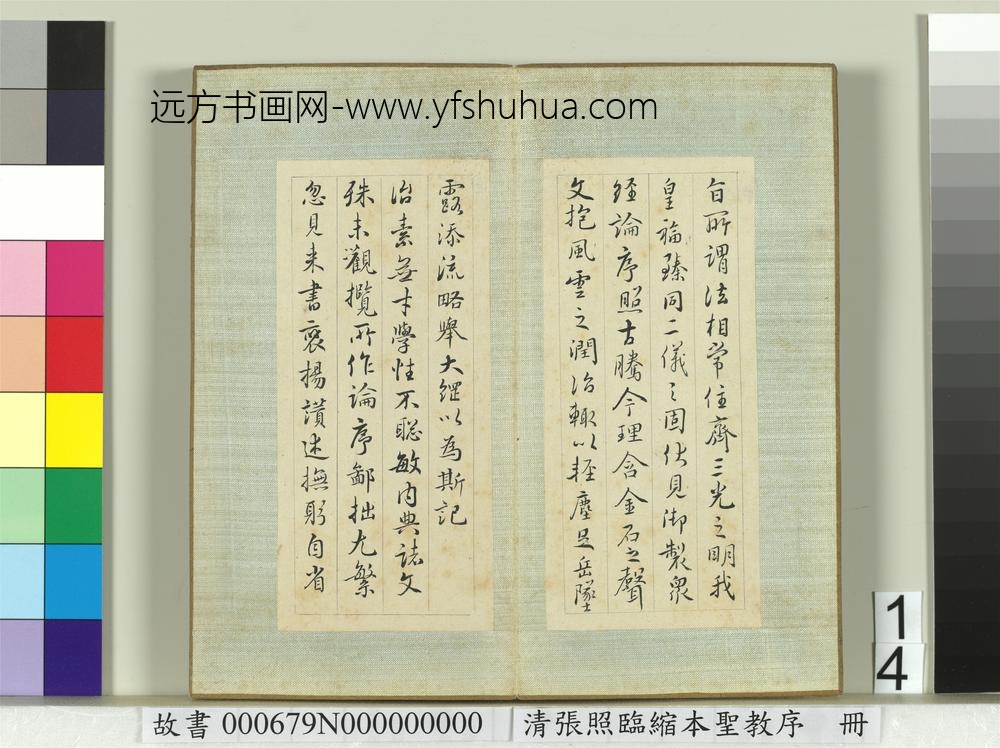 远方书画网-www.yfshuhua.com
旨所謂法相常住齊三光之明我
皇福臻同二儀之固伏見御製眾
經論序照古騰今理含金石之聲
文抱風雲之潤治輒以輕塵足岳墜
露添流略舉大綱以為斯記
治素無才學性不聰敏內典諸文
殊未觀攬所作論序鄙拙尤繁
忽見來書褒揚讚述撫躬自省
14
故書 000679N000000000 清張照臨縮本聖教序 冊